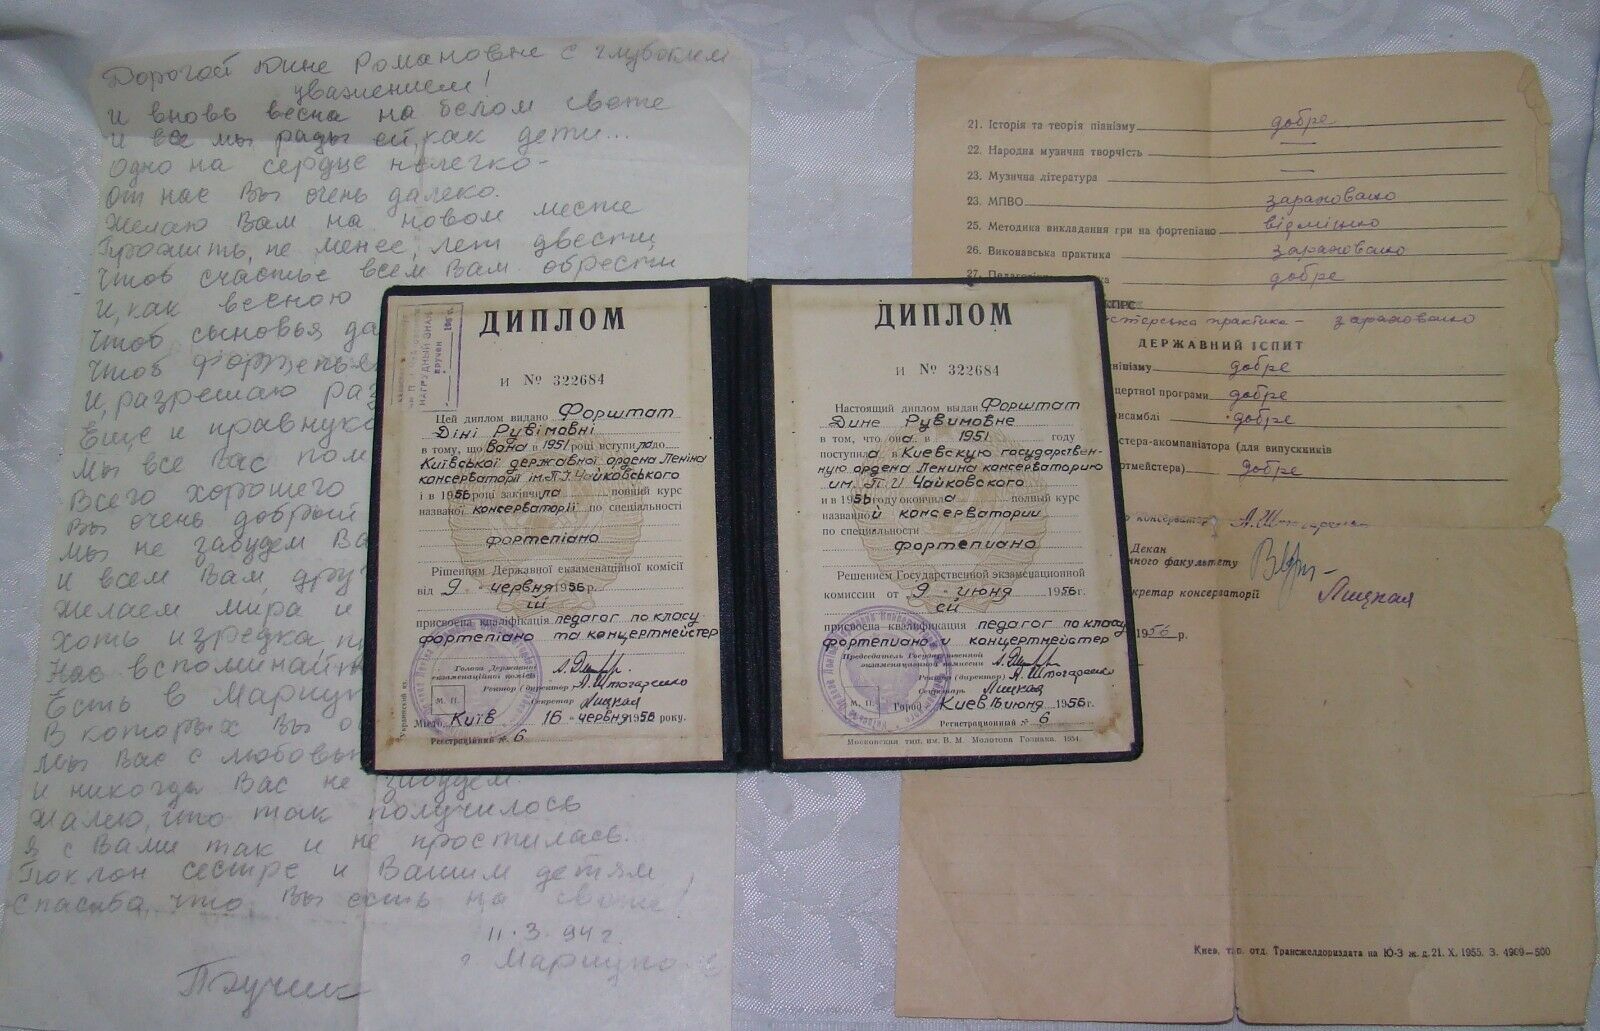 Дорогой Дине Романовне с глубоким
уважением!
И вновь весна на белом свете
И все мы рады ей, как дети...
Одно на сердце нелегко-
От нас Вы очень далеко.
Желаю Вам на новом месте
Прожить, не менее, лет двести,
Чтоб счастье всем Вам обрести
И, как весною
Чтоб сыновья
Чтоб
И, разрешаю
Еще и
Мы все Вас
Всего хорошего
Вы очень добрый
Мы не забудем
И всем Вам,
Желаем мира и
Хоть изредка
Нас вспоминайте
Есть в
В которых Вы
Мы Вас с любовью
И никогда Вас не забудем.
Жалею, что так получилось
Я с Вами так и не простилась.
Поклон сестре и Вашим детям,
Спасибо, что Вы есть на свете!
11.3.94 г.
НАГРУДНЫЙ ЗНАК
ВРУЧЕН
ДИПЛОМ
И № 322684
Цей диплом видано Форштат
Діні Рувімовні
в тому, що вона в 1951 році вступила до
Київської державної ордена Леніна
консерваторії ім. П.І. Чайковського
і в 1956 році закінчила повний курс
названої консерваторії по спеціальності
фортепіано
Рішенням Державної екзаменаційної комісії
від 9 червня 1956 р.
їй
присвоєна кваліфікація педагог по класу
фортепіано та концертмейстер
Голова Державної
екзаменаційної комісії
Ректор (директор) А. Штогаренко
М. П. Секретар Лицкая
Місто Київ 16 червня 1956 року.
Реєстраційний № 6
Украинский яз.
ДИПЛОМ
И № 322684
Настоящий диплом выдан Форштат
Дине Рувимовне
в том, что она в 1951 году
поступила в Киевскую государствен-
ную ордена Ленина консерваторию
им. П.И. Чайковского
и в 1956 году окончила полный курс
названной консерватории
по специальности
фортепиано
Решением Государственной экзаменационной
комиссии от 9 июня 1956 г.
ей
присвоена квалификация педагог по классу
фортепиано и концертмейстер
Председатель Государственной
экзаменационной комиссии
Ректор (директор) А. Штогаренко
Секретарь Лицкая
М. П. Город Киев 16 июня 1956 г.
Регистрационный № 6
Московская тип. им. В. М. Молотова Гознака. 1954.
21. Історія та теорія піанізму добре
22. Народна музична творчість —
23. Музична література —
23. МПВО зараховано
25. Методика викладання гри на фортепіано відмінно
26. Виконавська практика зараховано
27. добре
практика - зараховано
ДЕРЖАВНИЙ ІСПИТ
добре
програми добре
ансамблі добре
акомпаніатора (для випускників
добре
консерватор А. Штогаренко
Декан
факультету
секретар консерваторії Лицкая
1956 р.
Киев, тип. отд. Трансжелдориздата на Ю-З ж. д. 21. X. 1955. З. 4909—500